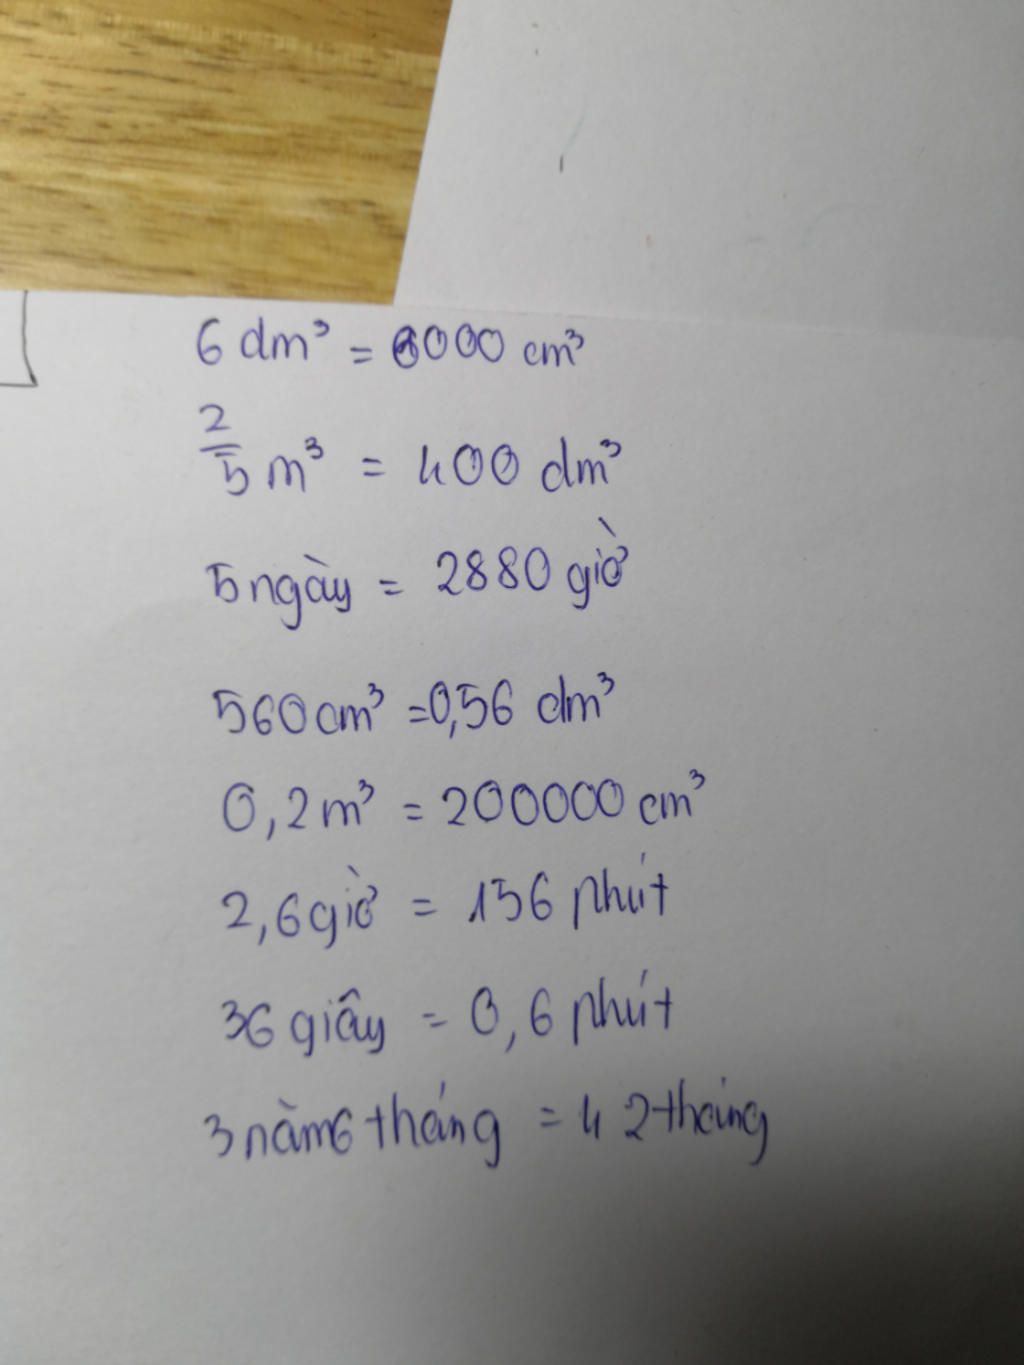 6 dm³ = 6000 cm³
2/5 m³ = 400 dm³
5 ngày = 2880 giờ
560 cm³ = 0,56 dm³
0,2 m³ = 200000 cm³
2,6 giờ = 156 phút
36 giây = 0,6 phút
3 năm 6 tháng = 42 tháng